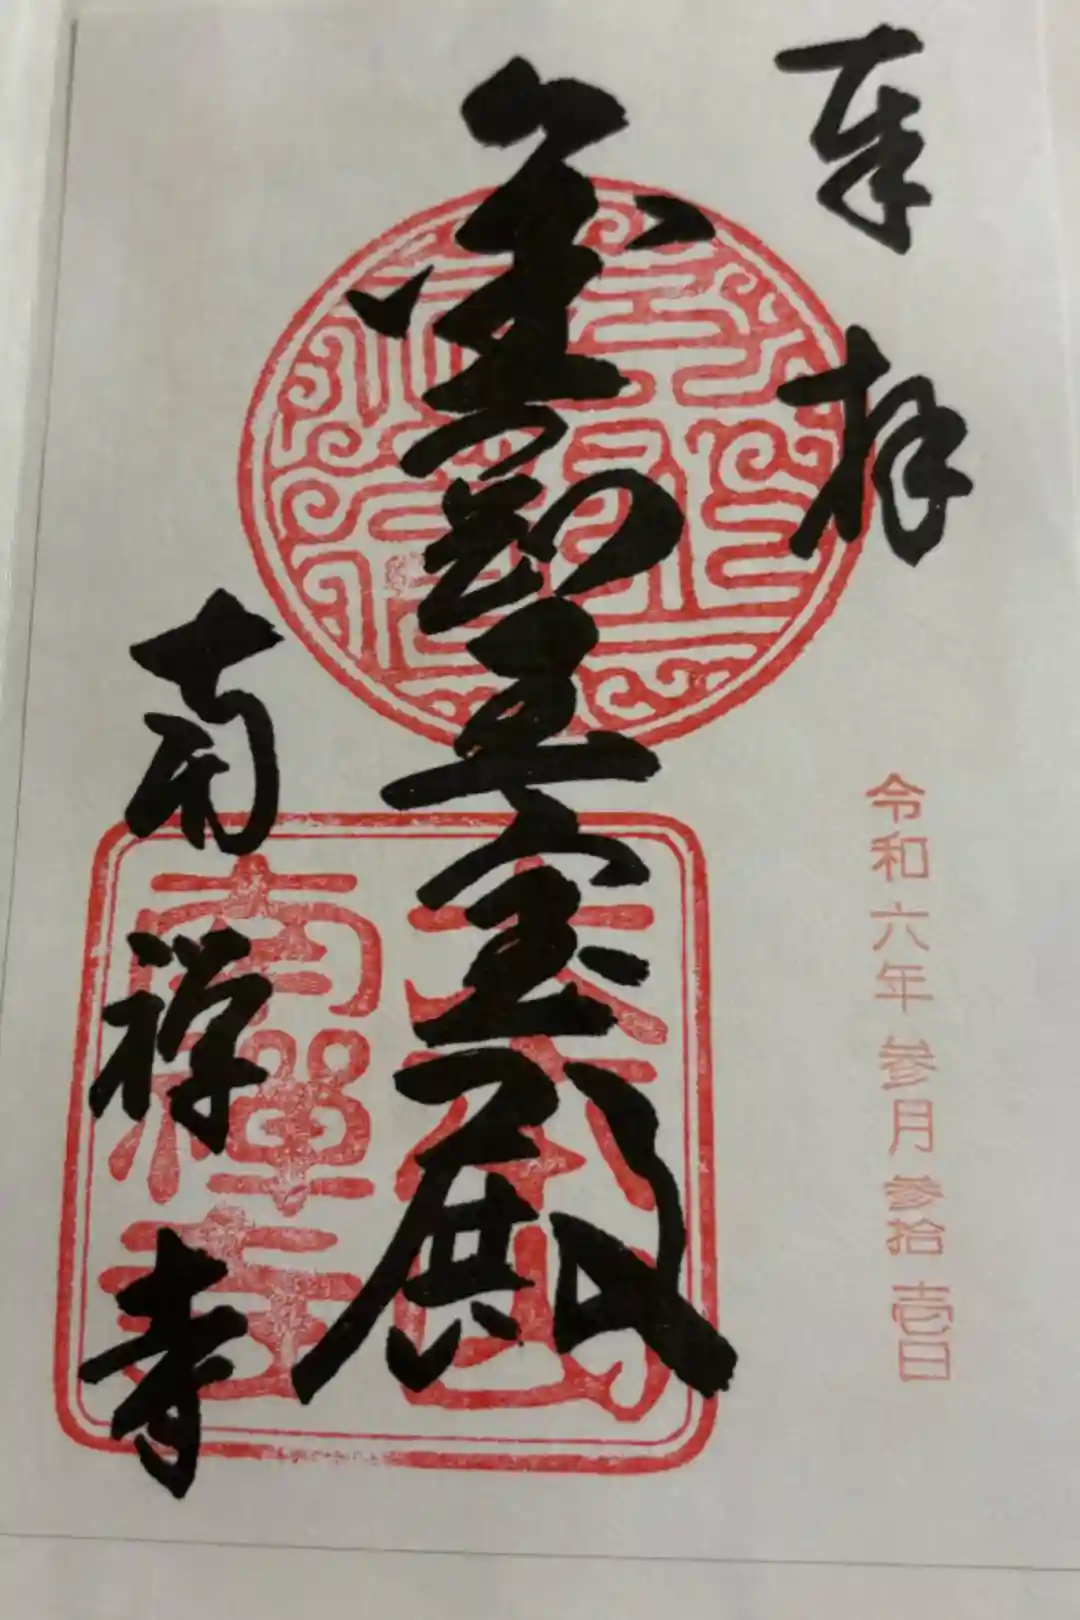 奉拝
令和六年参月参拾壱日
金剛王宝殿
南禅寺
大本山
南禪寺